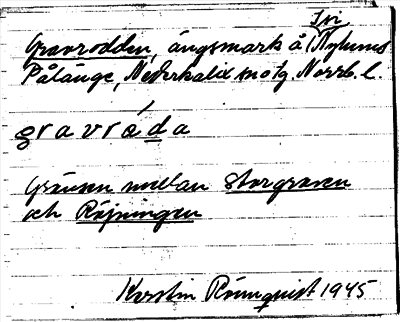 Gravrodden, ängsmark å (Nylunds
Pålänge, Nederkalix sn o tg. Norrb. l.
gravrɷda
Gränsen mellan Storgraven
och Röjningen
Kerstin Rönnquist 1945